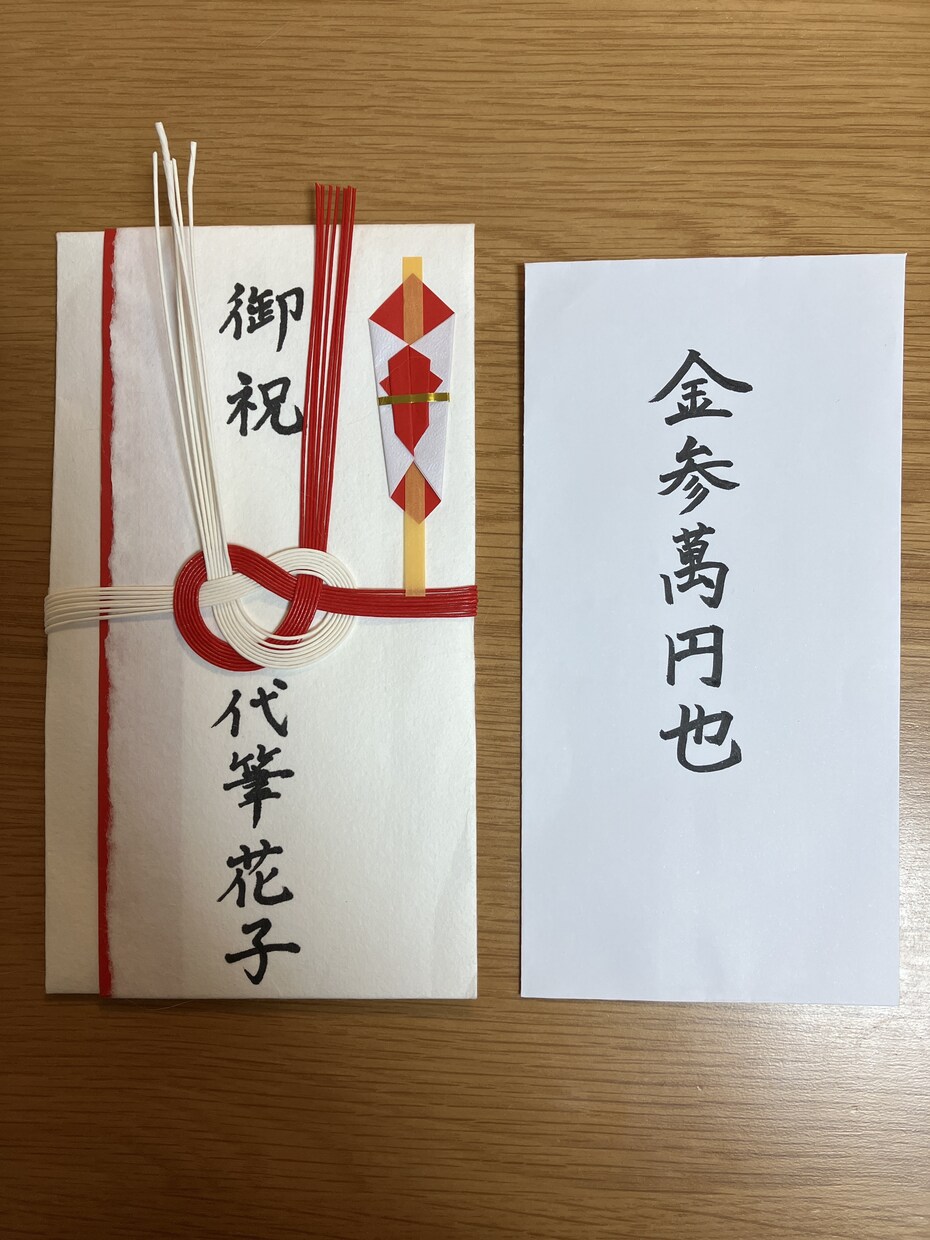 御祝
代筆花子
金参萬円也